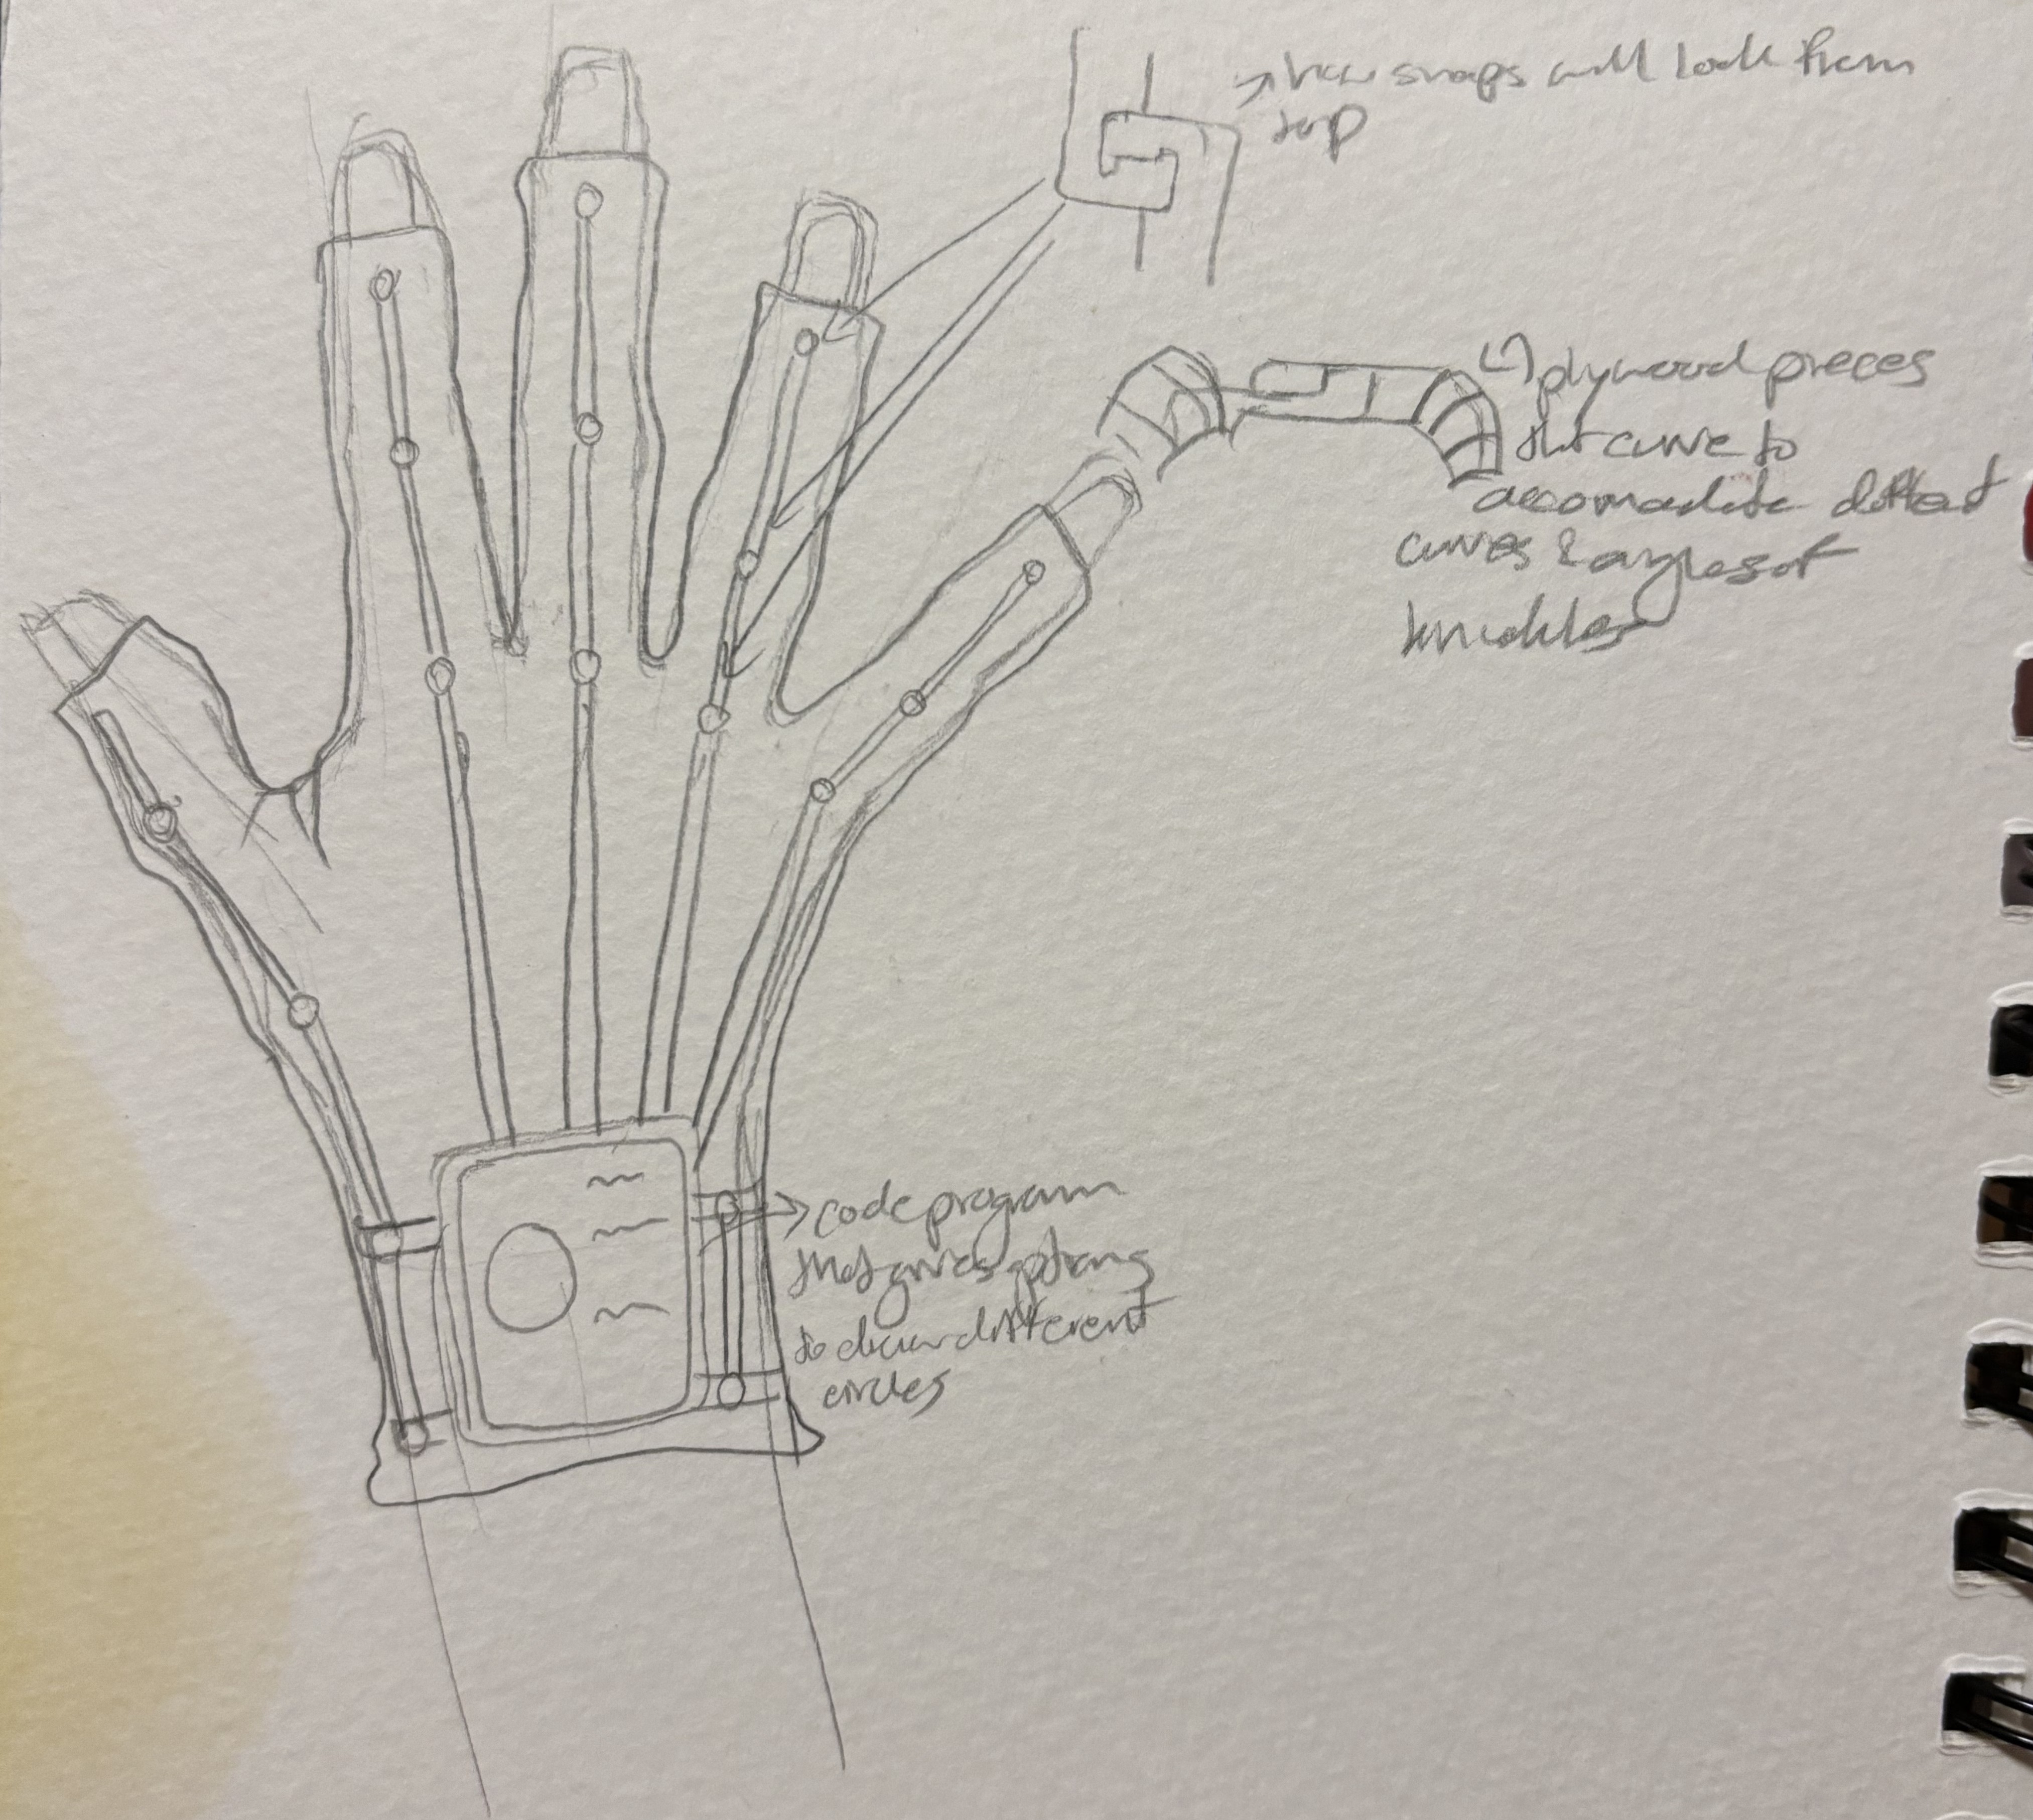 → how snaps will look from
top
↳ plywood pieces
that curve to
accomadate different
curves & angles of
knuckles
→ code program
that gives options
to draw different
circles